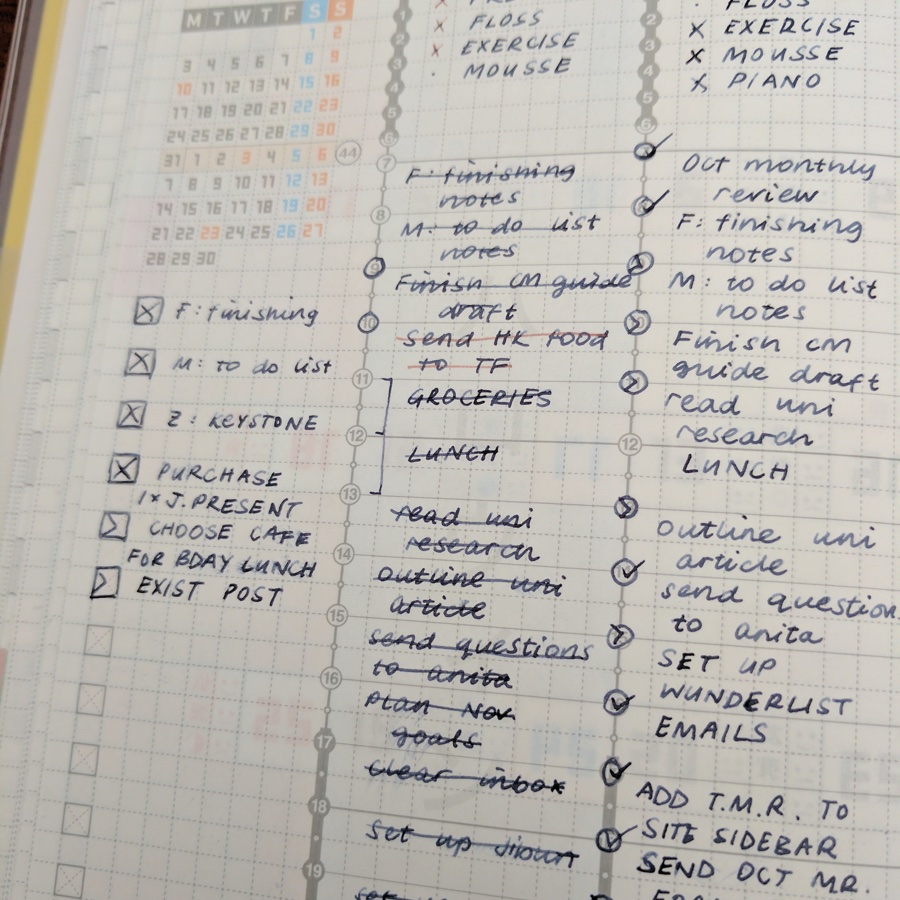 M T W T F S S
1 2
3 4 5 6 7 8 9
10 11 12 13 14 15 16
17 18 19 20 21 22 23
24 25 26 27 28 29 30
31 1 2 3 4 5 6 44
7 8 9 10 11 12 13
14 15 16 17 18 19 20
21 22 23 24 25 26 27
28 29 30
F: finishing
M: to do list
Z: KEYSTONE
PURCHASE
1x J. PRESENT
CHOOSE CAFE
FOR BDAY LUNCH
EXIST POST
1
2
3
4
5
6
7
8
9
10
11
12
13
14
15
16
17
18
19
x FLOSS
x EXERCISE
· MOUSSE
F: finishing
notes
M: to do list
notes
Finish CM guide
draft
send HK food
to TF
GROCERIES
LUNCH
read uni
research
outline uni
article
send questions
to anita
Plan Nov
goals
clear inbox
set up
2
3
4
5
6
12
FLOSS
x EXERCISE
x MOUSSE
x PIANO
Oct monthly
review
F: finishing
notes
M: to do list
notes
Finish CM
guide draft
read uni
research
LUNCH
outline uni
article
send question
to anita
SET UP
WUNDERLIST
EMAILS
ADD T.M.R. TO
SITE SIDEBAR
SEND OCT MR.